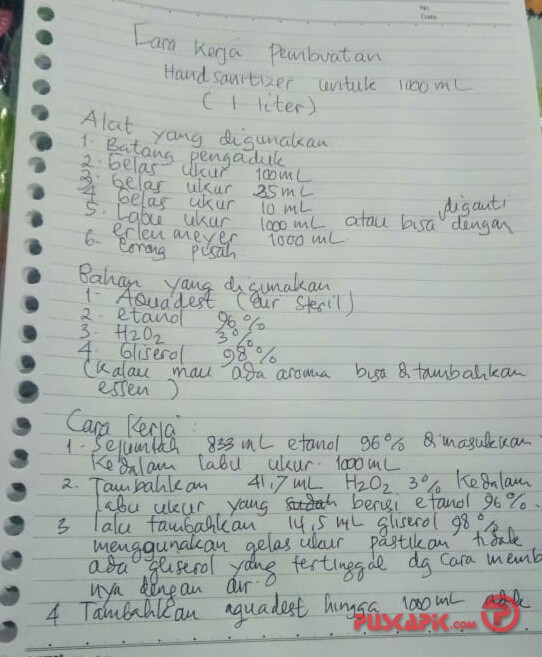 No
Date
Cara Kerja Pembuatan
Handsanitizer untuk 1000 mL
(1 liter)
Alat yang digunakan
1. Batang pengaduk
2. Gelas ukur 100 mL
3. Gelas ukur 25 mL
4. Gelas ukur 10 mL
5. Labu ukur 1000 mL atau bisa diganti dengan
erlenmeyer 1000 mL
6. Corong pisah
Bahan yang digunakan
1. Aquadest (air steril)
2. etanol 96%
3. H2O2 3%
4. Gliserol 98%
(Kalau mau ada aroma bisa ditambahkan
essen)
Cara Kerja :
1. Sejumlah 833 mL etanol 96% dimasukkan
Kedalam labu ukur 1000 mL
2. Tambahkan 41,7 mL H2O2 3% Kedalam
labu ukur yang berisi etanol 96%.
3 lalu tambahkan 14,5 mL gliserol 98%
menggunakan gelas ukur pastikan tidak
ada gliserol yang tertinggal dg cara memb
nya dengan air.
4 Tambahkan aquadest hingga 1000 mL
PUSKAPIK.com